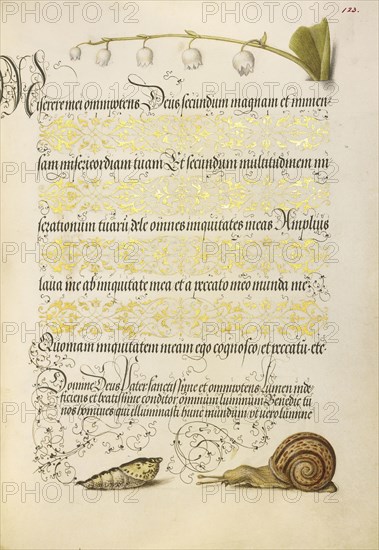 123.
Miserere mei omnipotens Deus secundum magnam et immen-
sam misericordiam tuam Et secundum multitudinem mi
serationum tuarũ dele omnes iniquitates meas Amplius
laua me ab iniquitate mea et a peccato meo munda me
Quoniam iniquitatem meam ego cognosco, et peccatũ etc
Domine Deus Pater sanctissigne et omnipotens lumen inde
ficiens et beatissime conditor omnium luminum Benedic tu
nos homines qui illuminasti hunc mundum ut vero lumine